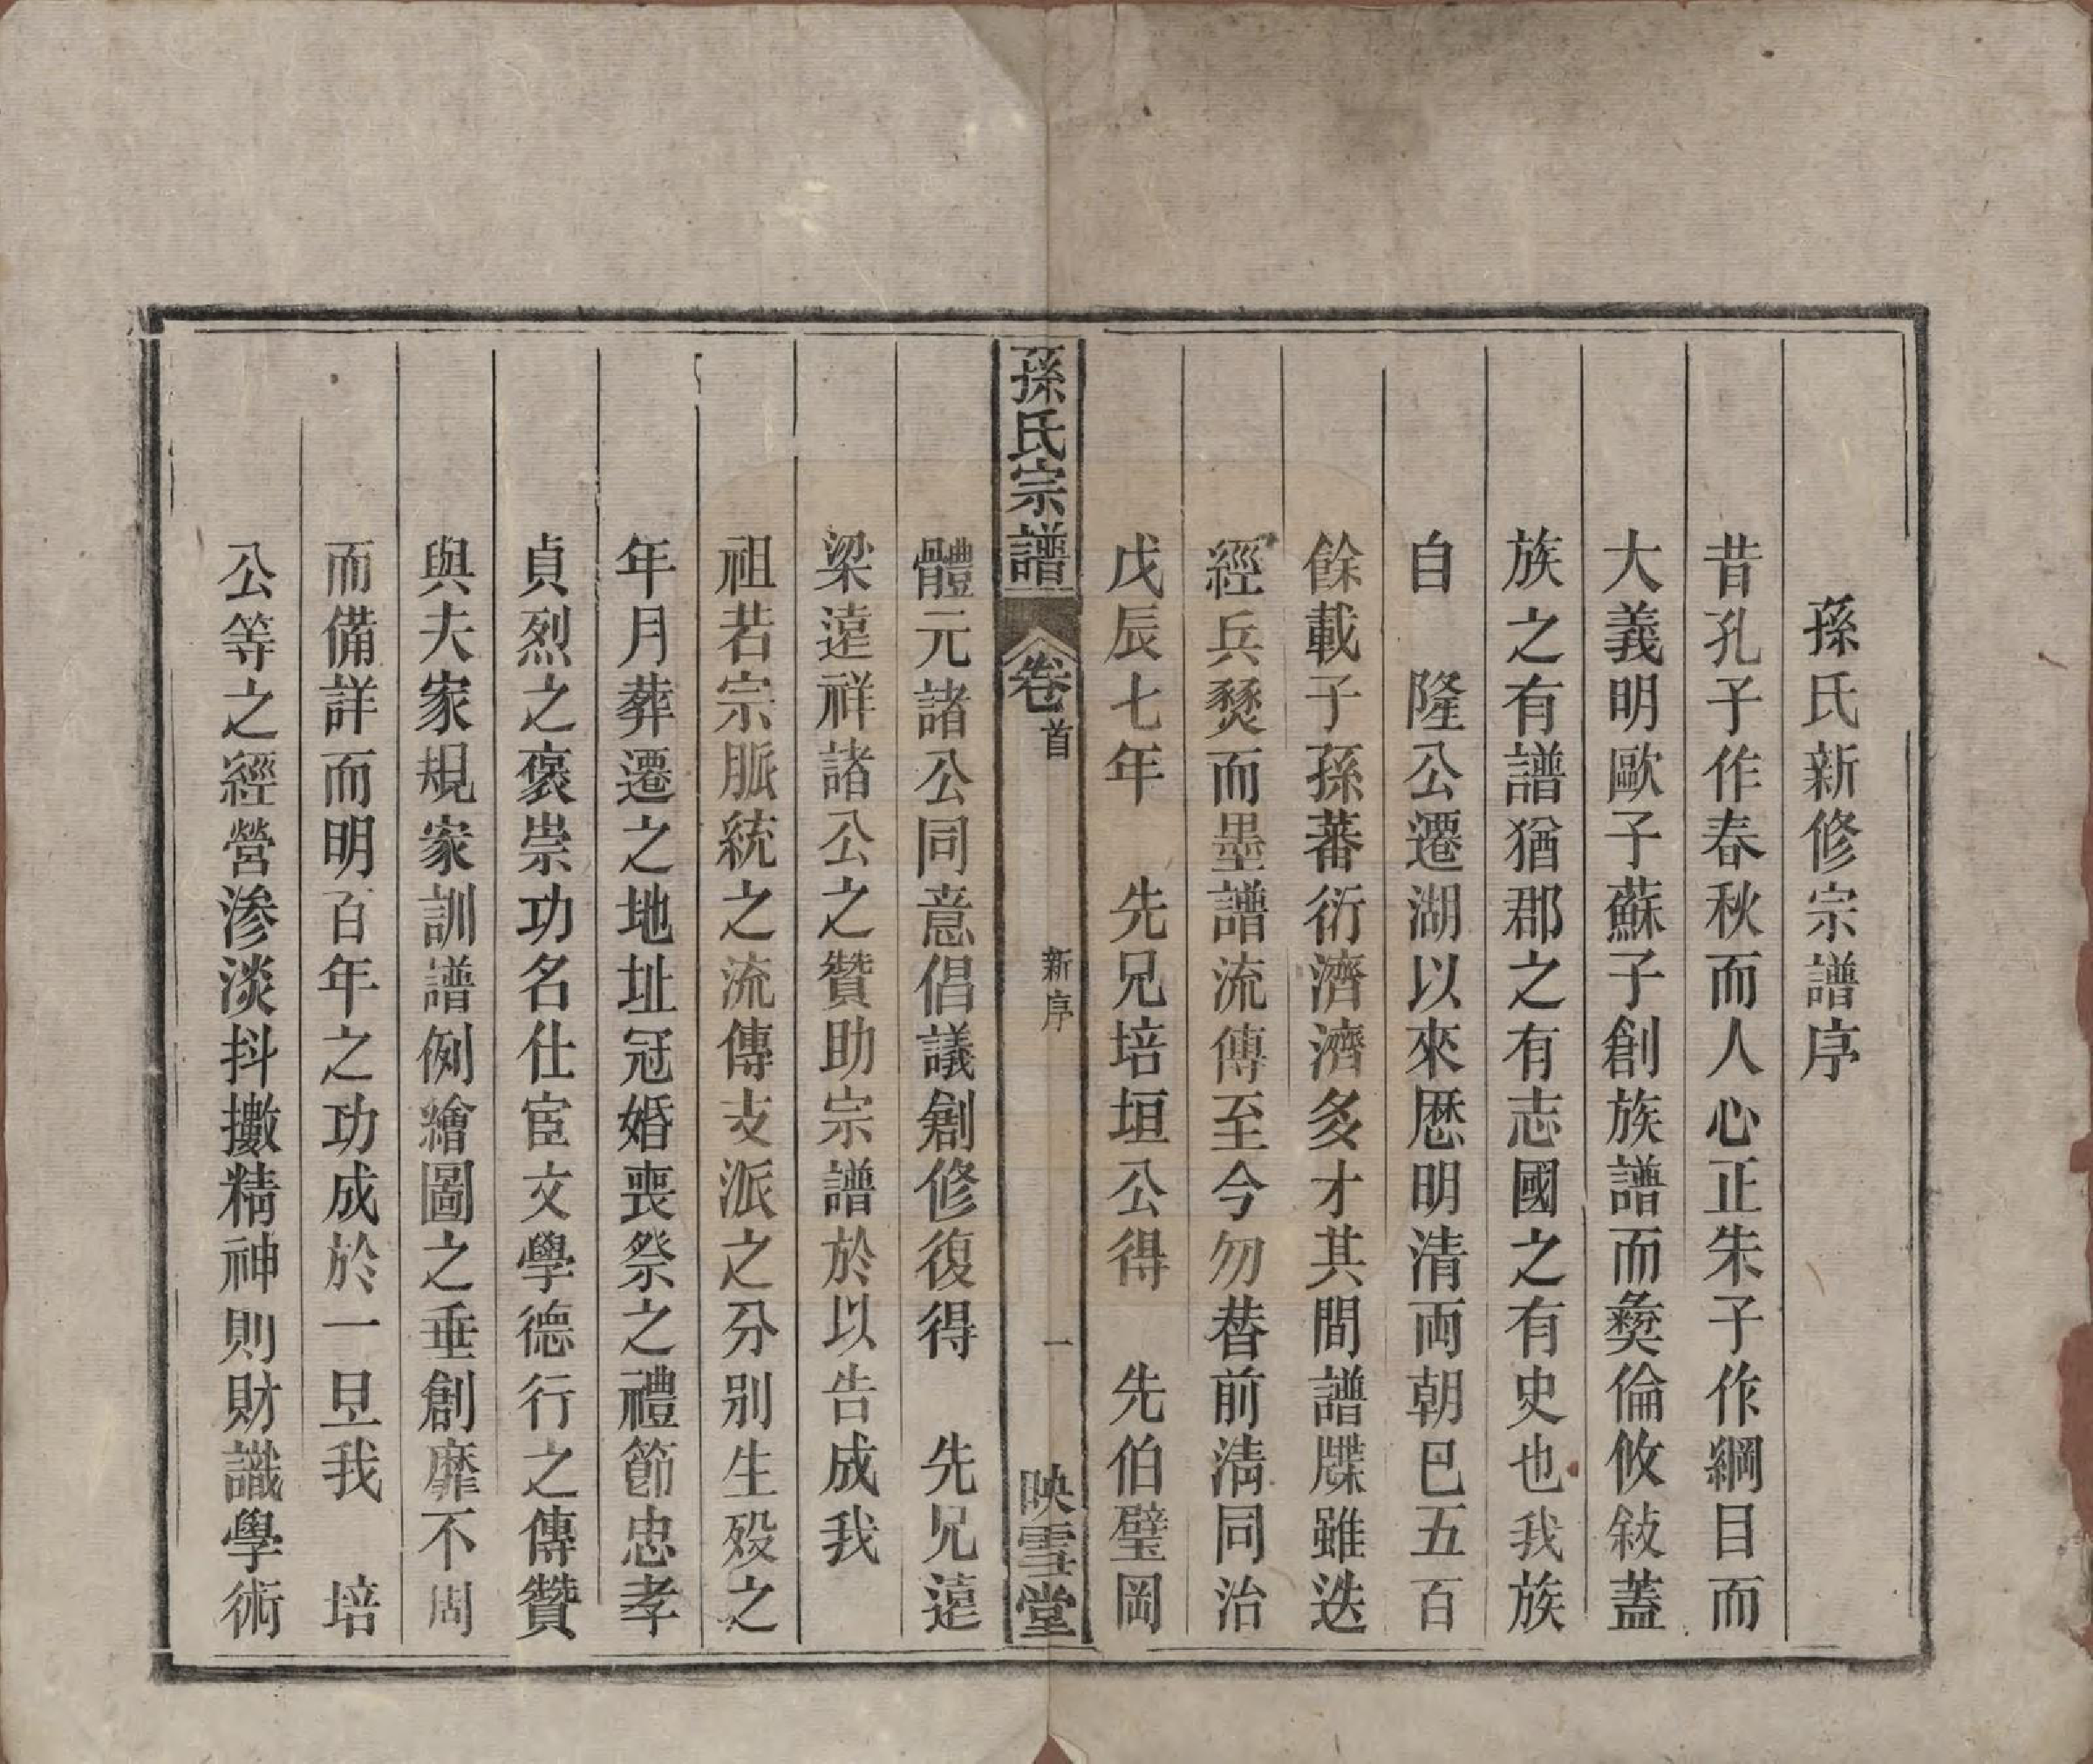 孫氏新修宗譜序
昔孔子作春秋而人心正朱子作綱目而
大義明歐子蘇子創族譜而彜倫攸敍蓋
族之有譜猶郡之有志國之有史也我族
自　隆公遷湖以來歷明清両朝已五百
餘載子孫蕃衍濟濟多才其間譜牒雖迭
經兵燹而墨譜流傳至今勿替前淸同治
戊辰七年　先兄培垣公得　先伯璧岡
孫氏宗譜　卷首　新序　一　映雪堂
體元諸公同意倡議創修復得　先兄遠
梁遠祥諸公之贊助宗譜於以告成我
祖若宗脈統之流傳支派之分別生歿之
年月葬遷之地址冠婚喪祭之禮節忠孝
貞烈之褒崇功名仕宦文學德行之傳贊
與夫家規家訓譜例繪圖之垂創靡不周
而備詳而明百年之功成於一旦我　培
公等之經營滲淡抖擻精神則財識學術